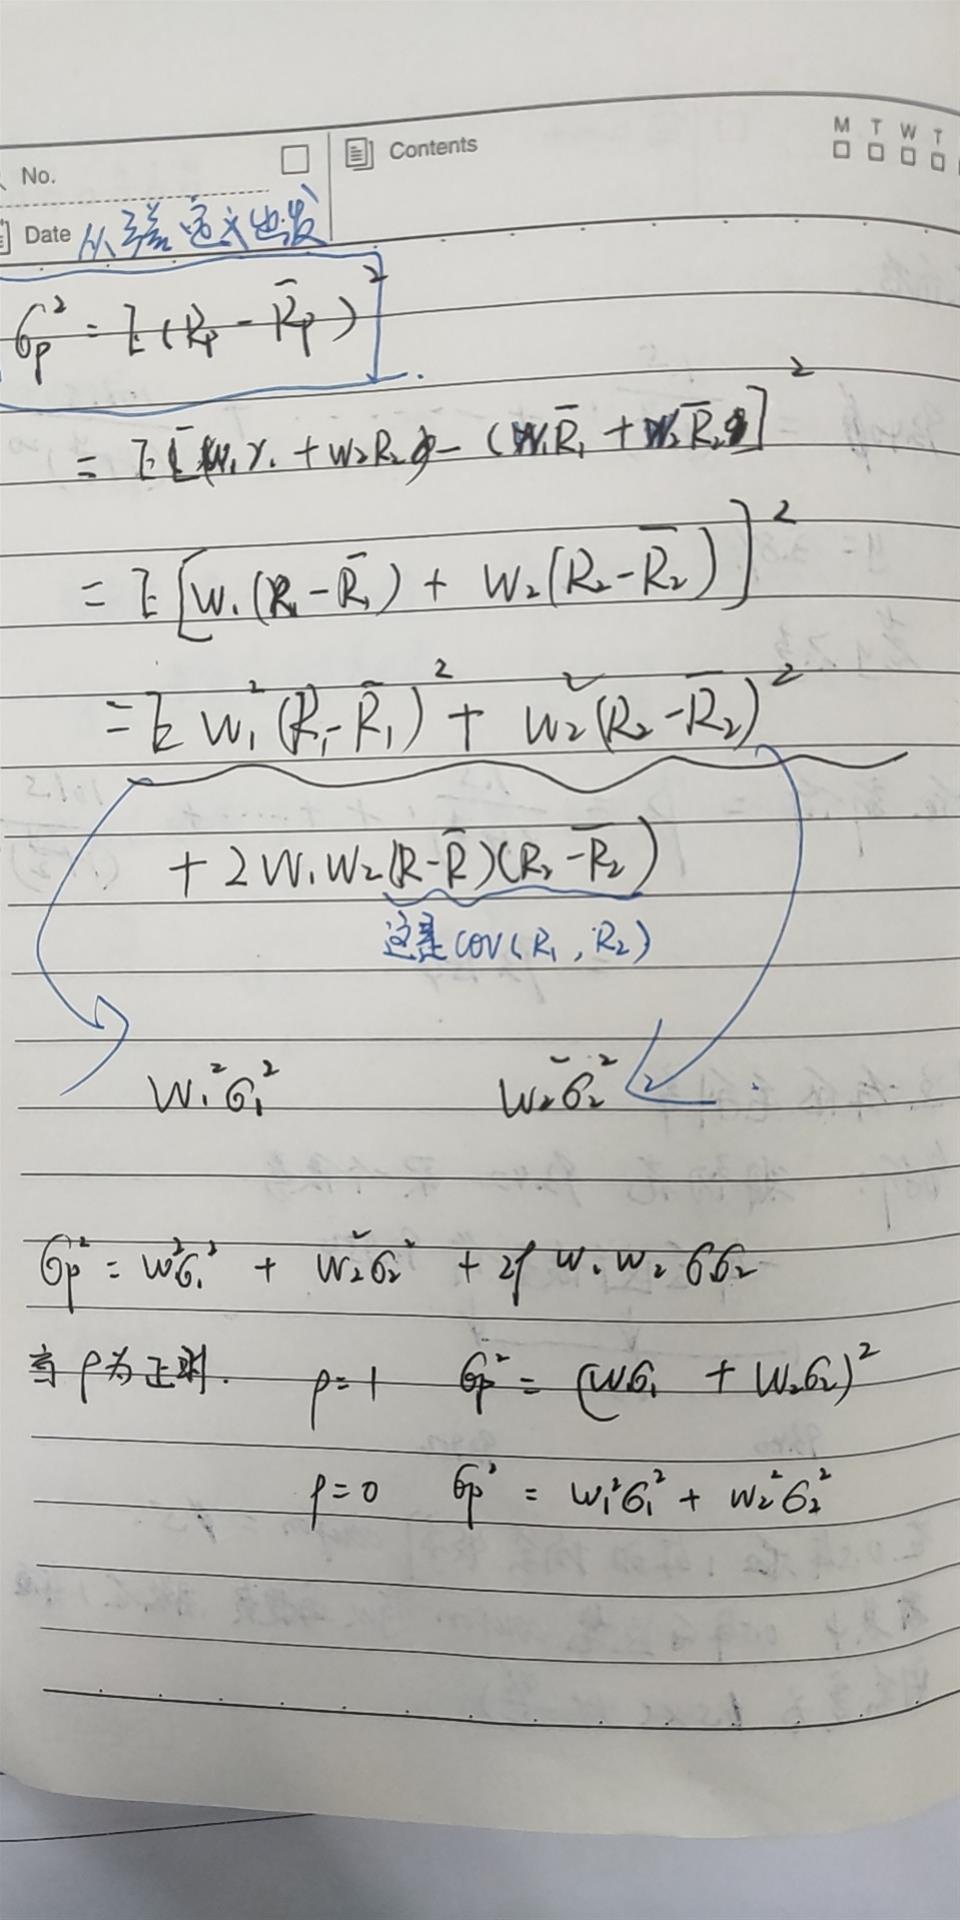 No.
Contents
M T W T
Date 从方差定义出发
σp² = E(Rp - R̄p)²
= E[(w₁r₁ + w₂R₂) - (w₁R̄₁ + w₂R̄₂)]²
= E[w₁(R₁ - R̄₁) + w₂(R₂ - R̄₂)]²
= E w₁²(R₁ - R̄₁)² + w₂²(R₂ - R̄₂)²
+ 2w₁w₂(R - R̄)(R₂ - R̄₂)
这是cov(R₁, R₂)
w₁²σ₁² w₂²σ₂²
σp² = w₁²σ₁² + w₂²σ₂² + 2ρ w₁w₂σσ₂
当ρ为正时. ρ=1 σp² = (wσ₁ + w₂σ₂)²
ρ=0 σp² = w₁²σ₁² + w₂²σ₂²